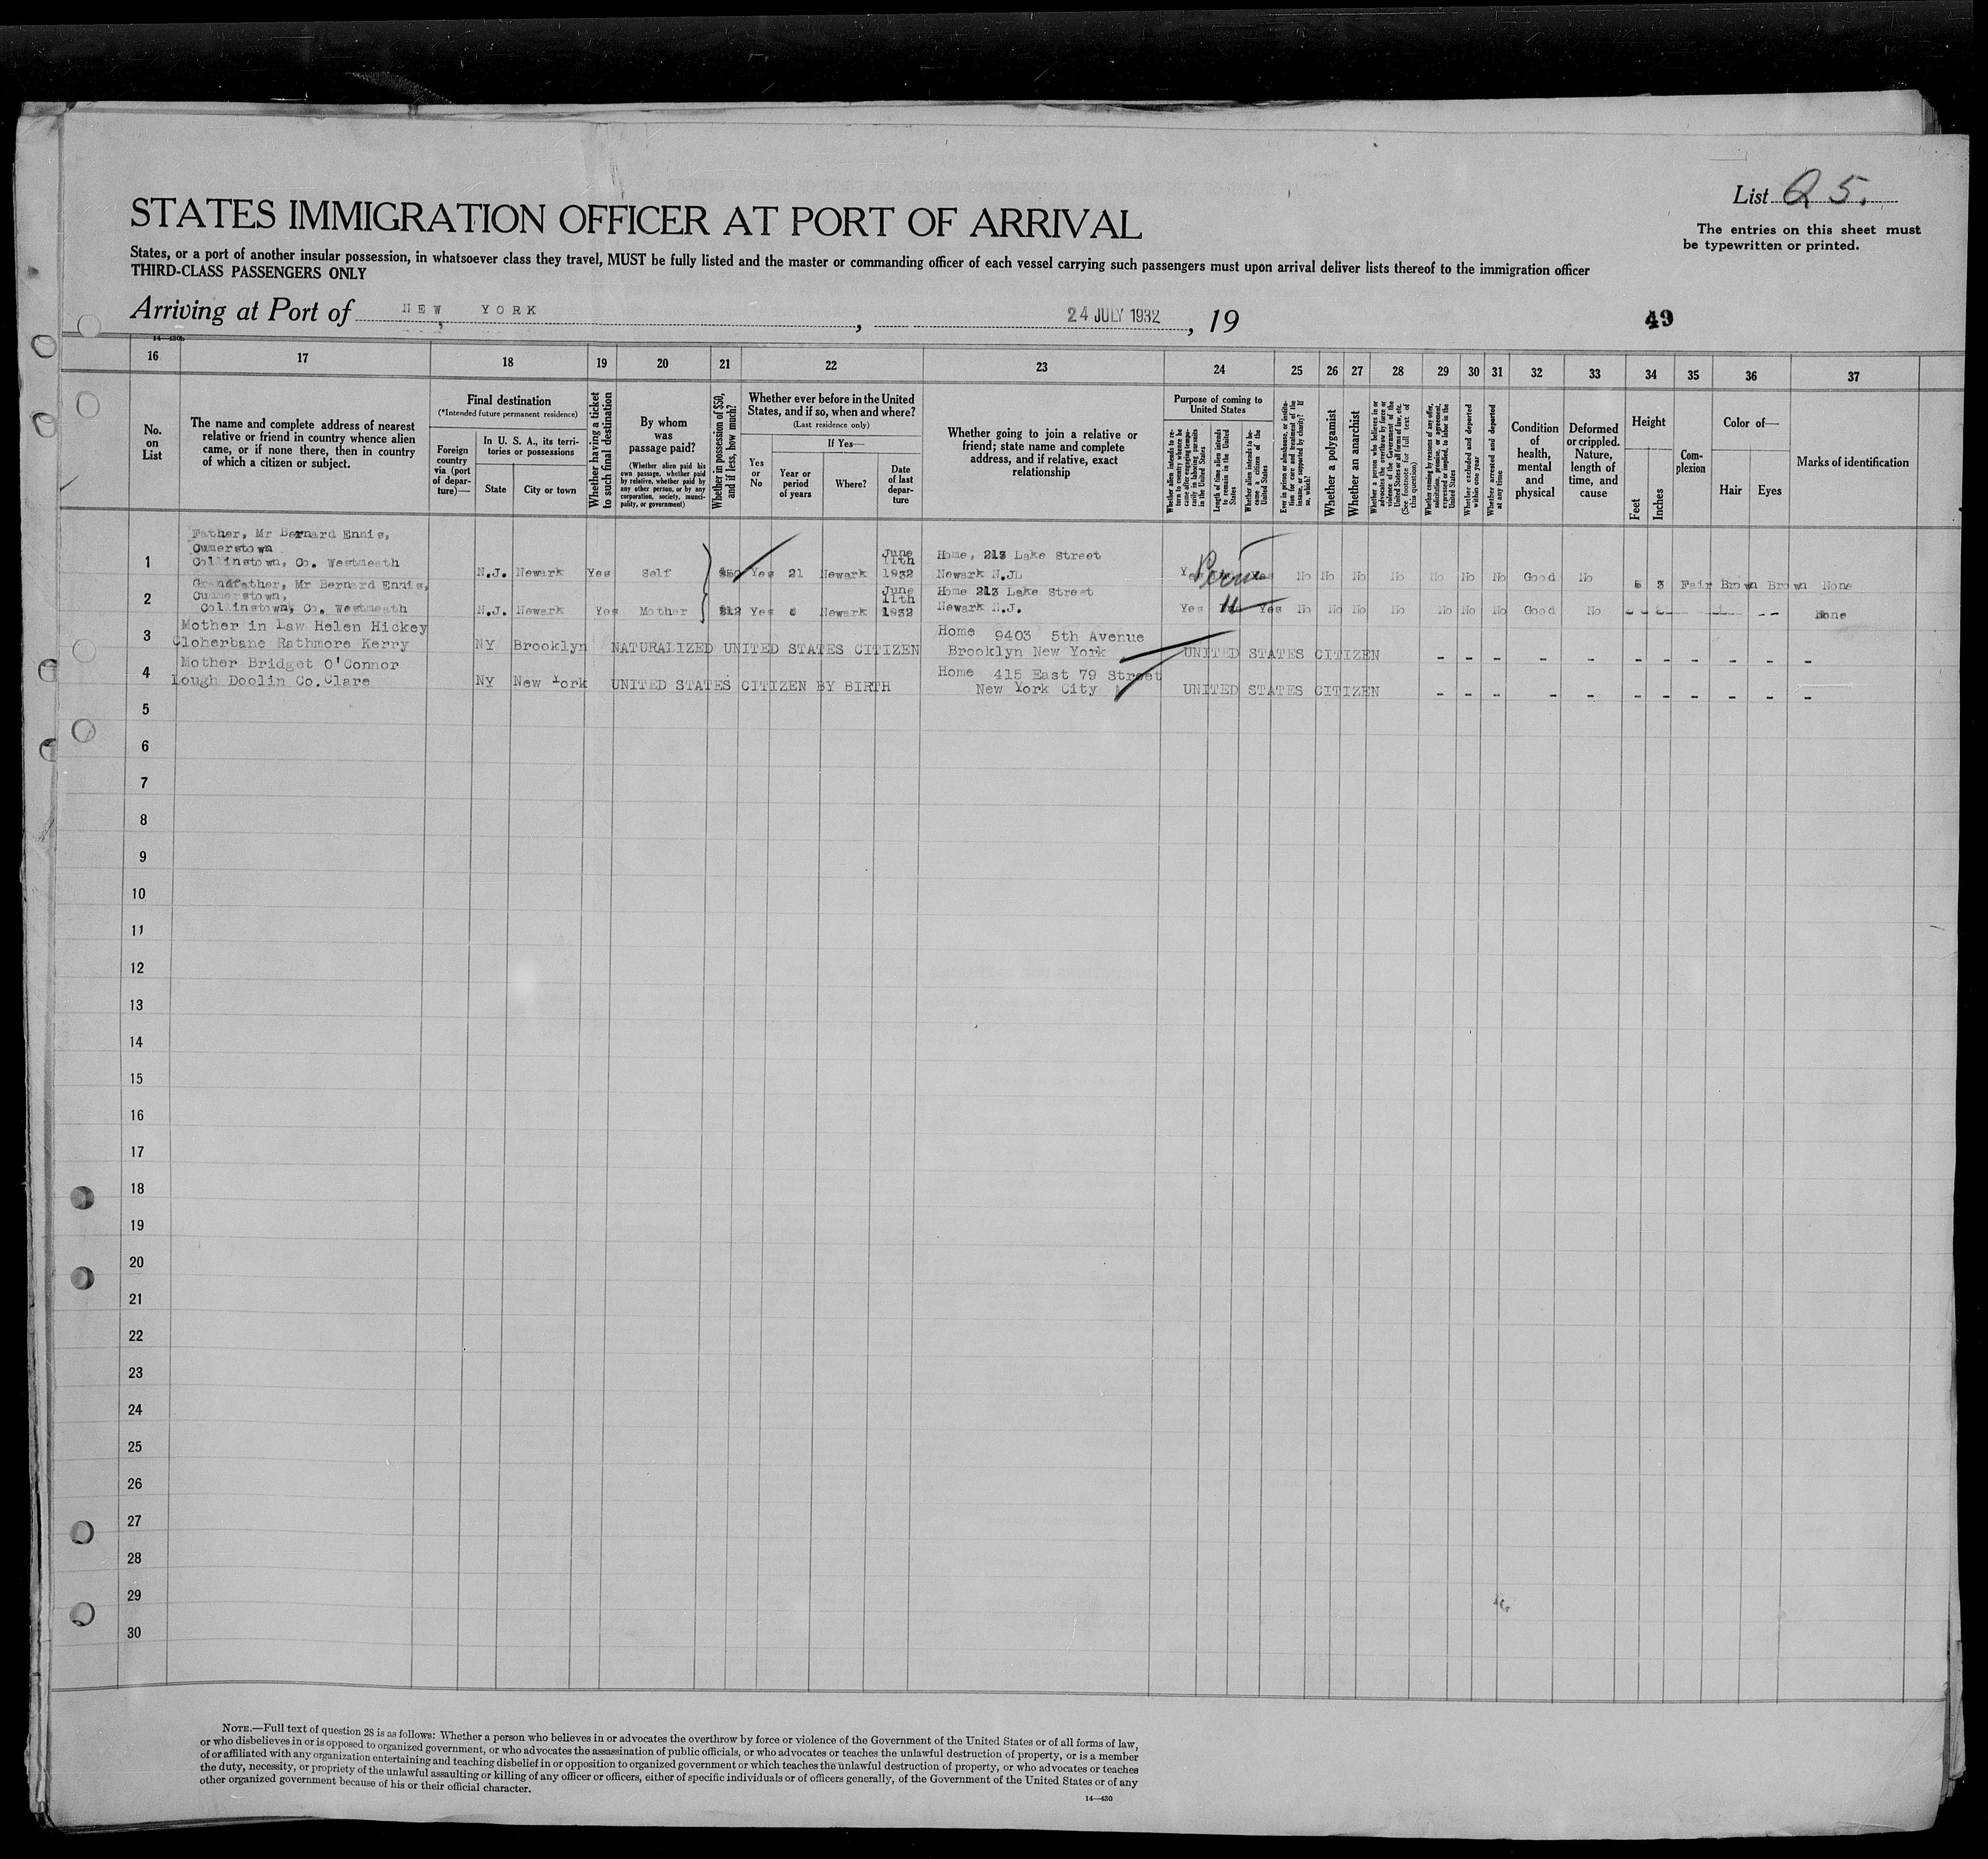 List Q 5.
The entries on this sheet must
be typewritten or printed.
STATES IMMIGRATION OFFICER AT PORT OF ARRIVAL
States, or a port of another insular possession, in whatsoever class they travel, MUST be fully listed and the master or commanding officer of each vessel carrying such passengers must upon arrival deliver lists thereof to the immigration officer
THIRD-CLASS PASSENGERS ONLY
Arriving at Port of NEW YORK , 24 JULY 1932, 19
49
14—430b
16 17 18 19 20 21 22 23 24 25 26 27 28 29 30 31 32 33 34 35 36 37
No.
on
List
The name and complete address of nearest
relative or friend in country whence alien
came, or if none there, then in country
of which a citizen or subject.
Final destination
(*Intended future permanent residence)
Foreign
country
via (port
of depar-
ture)—
In U. S. A., its terri-
tories or possessions
State
City or town
Whether having a ticket
to such final destination
By whom
was
passage paid?
(Whether alien paid his
own passage, whether paid
by relative, whether paid by
any other person, or by any
corporation, society, munici-
pality, or government)
Whether in possession of $50,
and if less, how much?
Whether ever before in the United
States, and if so, when and where?
(Last residence only)
Yes
or
No
If Yes—
Year or
period
of years
Where?
Date
of last
depar-
ture
Whether going to join a relative or
friend; state name and complete
address, and if relative, exact
relationship
Purpose of coming to
United States
Whether alien intends to re-
turn to country whence he
came after engaging tempo-
rarily in laboring pursuits
in the United States
Length of time alien intends
to remain in the United
States
Whether alien intends to be-
come a citizen of the
United States
Ever in prison or almshouse, or institu-
tion for care and treatment of the
insane, or supported by charity? If
so, which?
Whether a polygamist
Whether an anarchist
Whether a person who believes in or
advocates the overthrow by force or
violence of the Government of the
United States or all forms of law, etc.
(See footnote for full text of
this question)
Whether coming by reasons of any offer,
solicitation, promise, or agreement,
expressed or implied, to labor in the
United States
Whether excluded and deported
within one year
Whether arrested and deported
at any time
Condition
of
health,
mental
and
physical
Deformed
or crippled.
Nature,
length of
time, and
cause
Height
Feet
Inches
Com-
plexion
Color of—
Hair
Eyes
Marks of identification
Father, Mr Bernard Ennis,
Cumerstown
1 Collinstown, Co. Westmeath
N.J. Newark Yes Self $50 Yes 21 Newark June 11th 1932
Home, 213 Lake Street
Newark N.J.
Perm Yes No No No No No No No Good No 5 3 Fair Brown Brown None
Grandfather, Mr Bernard Ennis,
2 Cummerstown,
Collinstown, Co. Westmeath
N.J. Newark Yes Mother $12 Yes Newark June 11th 1932
Home 213 Lake Street
Newark N.J.
Yes " Yes No No No No No No No Good No - - - - - None
Mother in Law Helen Hickey
3 Cloherbane Rathmore Kerry
NY Brooklyn NATURALIZED UNITED STATES CITIZEN
Home 9403 5th Avenue
Brooklyn New York
UNITED STATES CITIZEN - - - - - - - - - - -
Mother Bridget O'Connor
4 Lough Doolin Co. Clare
NY New York UNITED STATES CITIZEN BY BIRTH
Home 415 East 79 Street
New York City
UNITED STATES CITIZEN - - - - - - - - - - -
5
6
7
8
9
10
11
12
13
14
15
16
17
18
19
20
21
22
23
24
25
26
27
28
29
30
NOTE.—Full text of question 28 is as follows: Whether a person who believes in or advocates the overthrow by force or violence of the Government of the United States or of all forms of law,
or who disbelieves in or is opposed to organized government, or who advocates the assassination of public officials, or who advocates or teaches the unlawful destruction of property, or is a member
of or affiliated with any organization entertaining and teaching disbelief in or opposition to organized government or which teaches the unlawful destruction of property, or who advocates or teaches
the duty, necessity, or propriety of the unlawful assaulting or killing of any officer or officers, either of specific individuals or of officers generally, of the Government of the United States or of any
other organized government because of his or their official character.
14—430